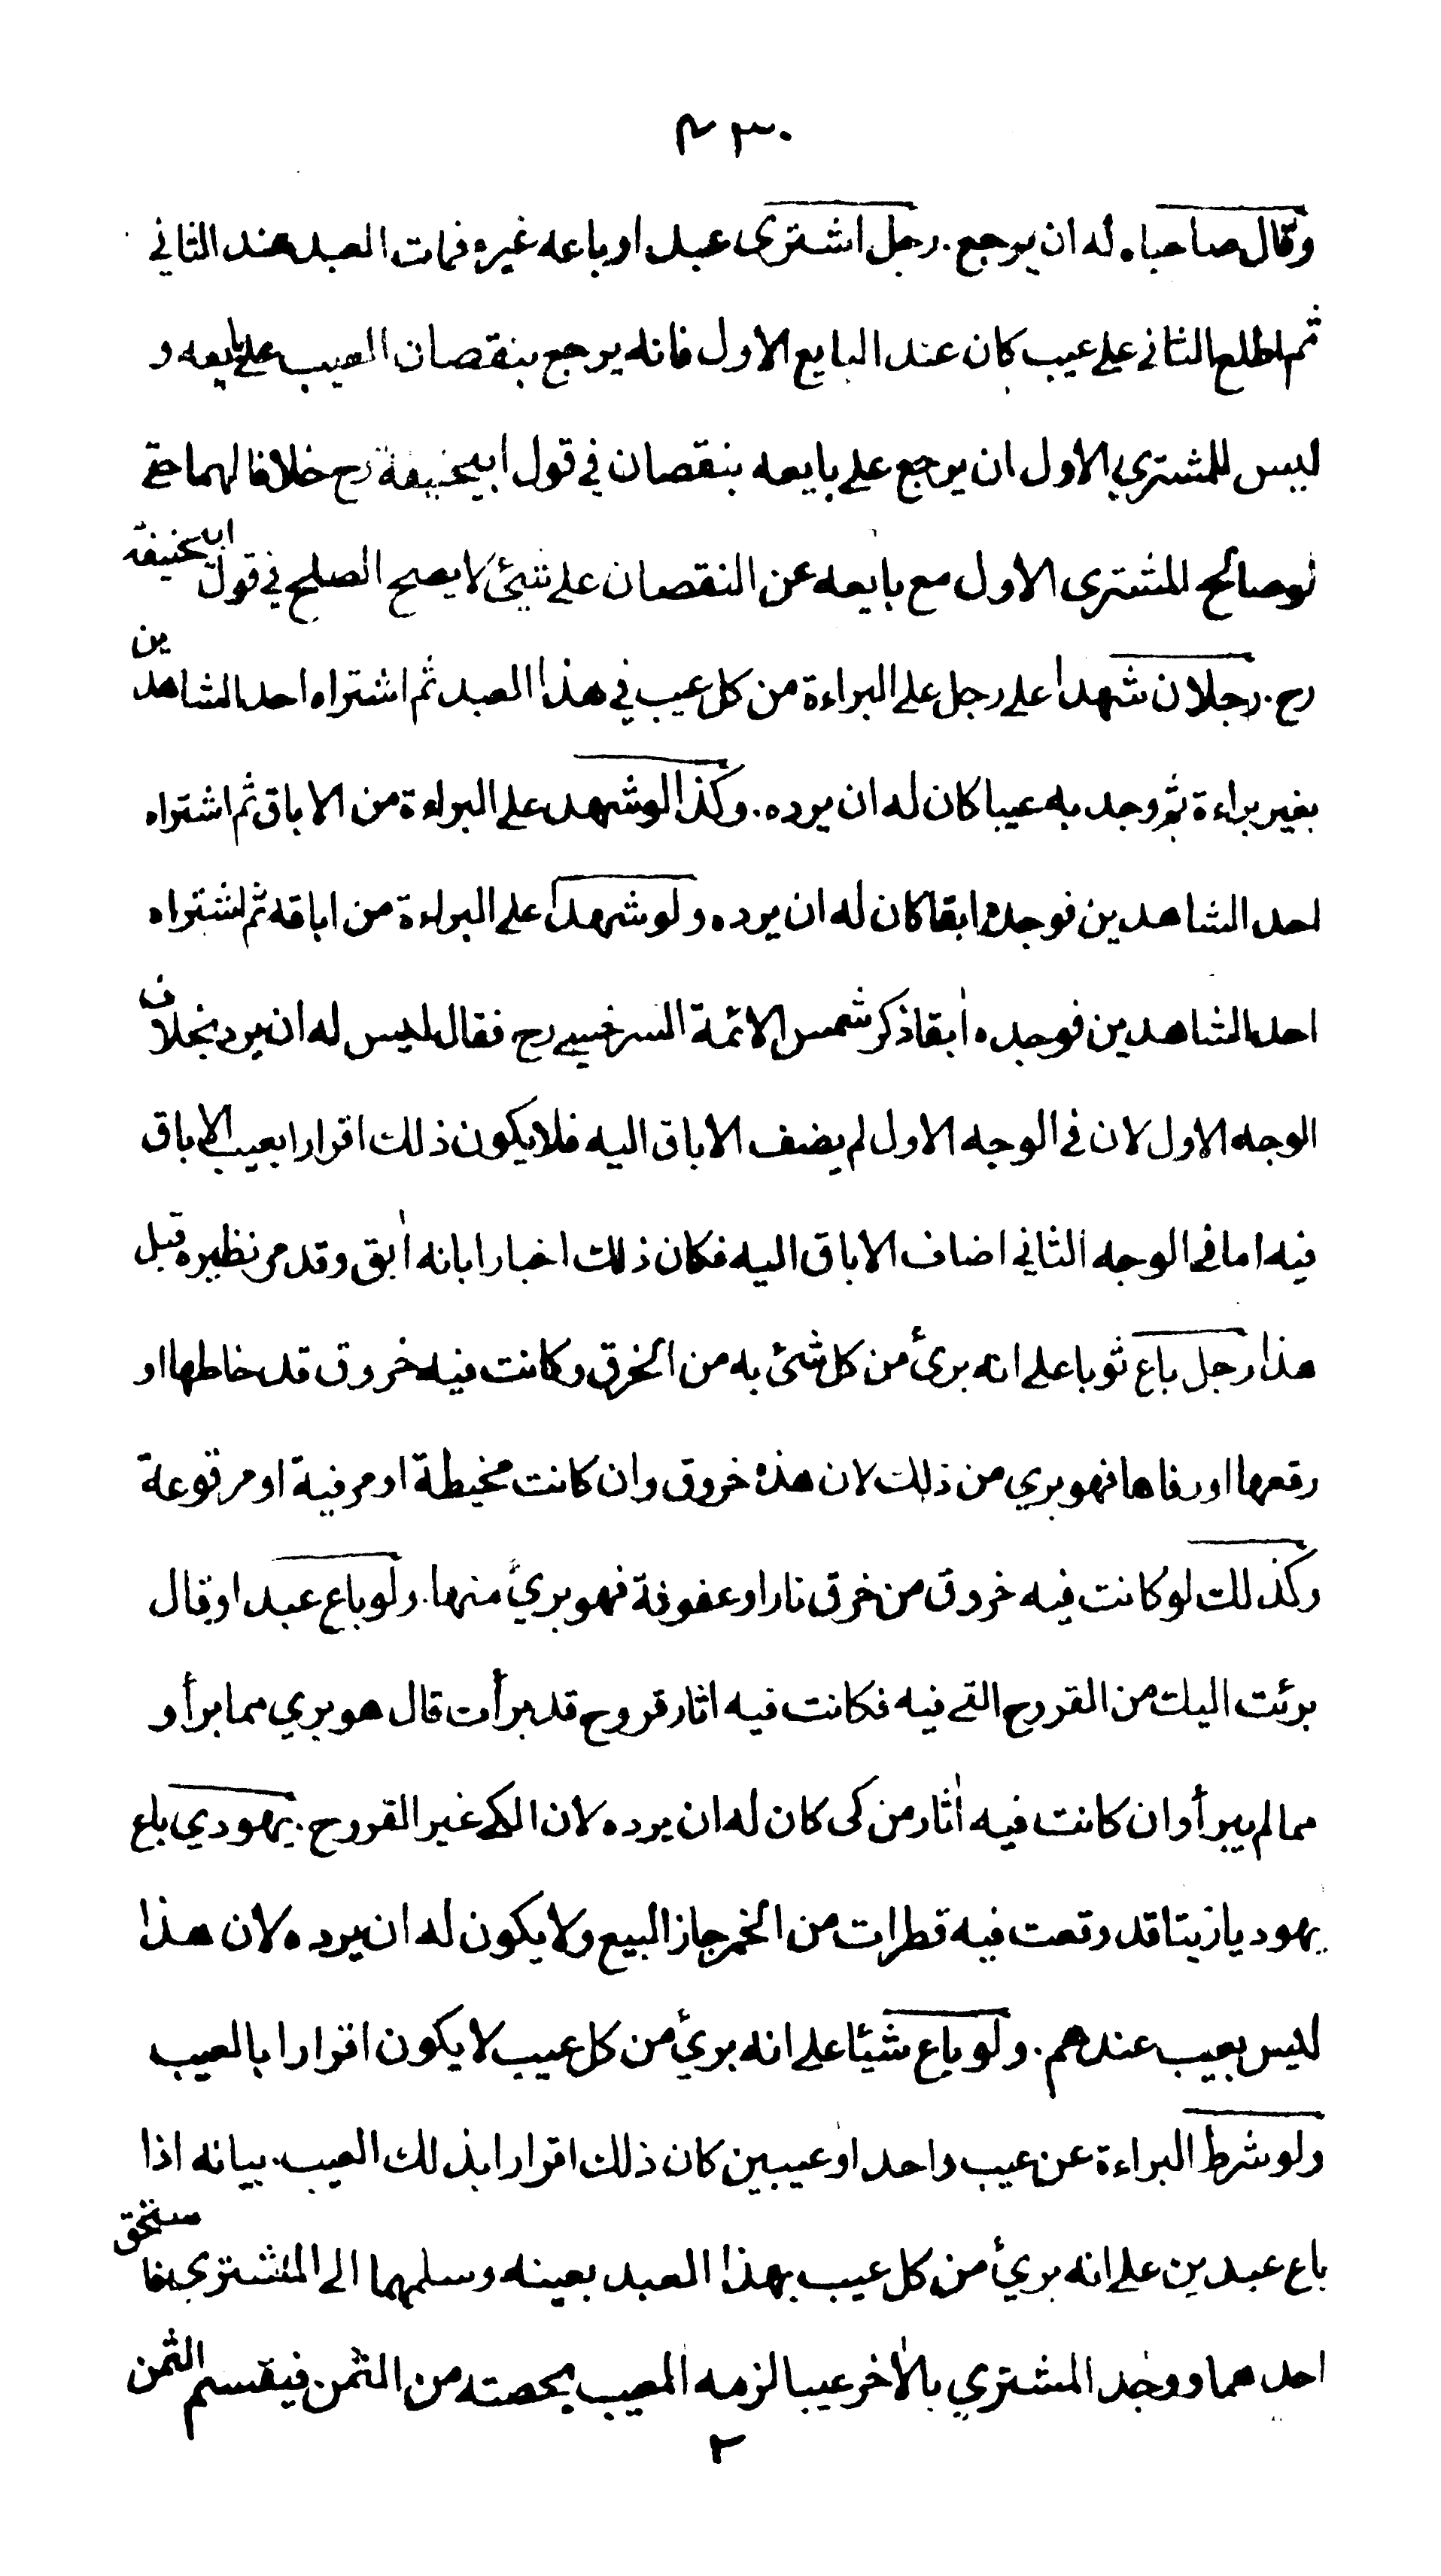 ٤٣٠
وقال صاحباه له ان يرجع . رجل اشترى عبدا وباعه غيره فمات العبد عند الثاني
ثم اطلع الثاني على عيب كان عند البايع الاول فانه يرجع بنقصان العيب على بايعه و
ليس للمشتري الاول ان يرجع على بايعه بنقصان في قول ابيحنيفة رح خلافا لهما حتى
لوصالح المشترى الاول مع بايعه عن النقصان على شيئ لا يصح الصلح في قول ابيحنيفة
رح . رجلان شهدا على رجل على البراءة من كل عيب في هذا العبد ثم اشتراه احد الشاهدين
بغير براءة ثم وجد به عيبا كان له ان يرده . وكذا لو شهد على البراءة من الاباق ثم اشتراه
احد الشاهدين فوجده ابقا كان له ان يرده ولو شهدا على البراءة من اباقه ثم اشتراه
احد الشاهدين فوجده اٰبقا ذكر شمس الائمة السرخسي رح فقال ليس له ان يرد بخلاف
الوجه الاول لان في الوجه الاول لم يضف الاباق اليه فلا يكون ذلك اقرارا بعيب الاباق
فيه اما في الوجه الثاني اضاف الاباق اليه فكان ذلك اخبارا بانه اٰبق وقد مر نظيره قبل
هذا رجل باع ثوبا على انه برئ من كل شئ به من الخرق وكانت فيه خروق قد خاطها او
رقعها او رفاها فهو بري من ذلك لان هذه خروق وان كانت مخيطة او مرفية او مرقوعة
وكذلك لو كانت فيه خروق من خرق نار او عفونة فهو بريئ منها . ولو باع عبدا وقال
برئت اليك من القروح التي فيه فكانت فيه اثار قروح قد برأت قال هو بري مما برأ و
مما لم يبرأ وان كانت فيه اٰثار من كى كان له ان يرده لان الكي غير القروح . يهودي باع
يهوديا زيتا قد وقعت فيه قطرات من الخمر جاز البيع ولا يكون له ان يرده لان هذا
ليس بعيب عندهم . ولو باع شيئا على انه بريئ من كل عيب لا يكون اقرارا بالعيب
ولو شرط البراءة عن عيب واحد او عيبين كان ذلك اقرارا بذلك العيب . بيانه اذا
باع عبدين على انه بريئ من كل عيب بهذا العبد بعينه وسلمهما الى المشتري فاستحق
احدهما ووجد المشتري بالاٰخر عيبا لزمه المعيب بحصته من الثمن فيقسم الثمن
٢